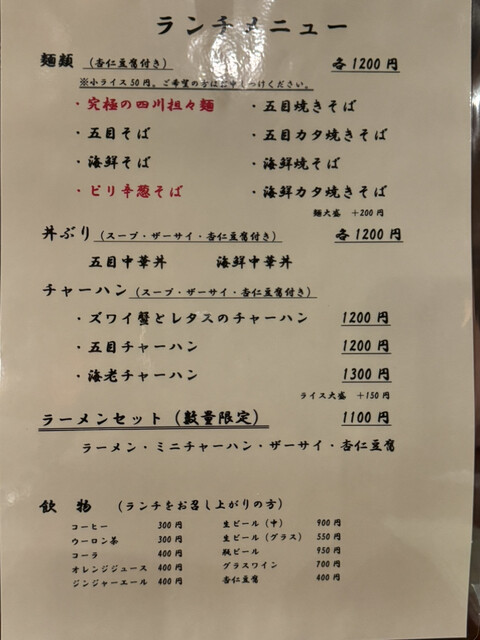 ランチメニュー
麺類 (杏仁豆腐付き) 各1200円
※小ライス50円。ご希望の方はお申しつけください。
・究極の四川担々麺 ・五目焼きそば
・五目そば ・五目カタ焼きそば
・海鮮そば ・海鮮焼そば
・ピリ辛葱そば ・海鮮カタ焼きそば
麺大盛 +200円
丼ぶり (スープ・ザーサイ・杏仁豆腐付き) 各1200円
五目中華丼 海鮮中華丼
チャーハン (スープ・ザーサイ・杏仁豆腐付き)
・ズワイ蟹とレタスのチャーハン 1200円
・五目チャーハン 1200円
・海老チャーハン 1300円
ライス大盛 +150円
ラーメンセット (数量限定) 1100円
ラーメン・ミニチャーハン・ザーサイ・杏仁豆腐
飲物 (ランチをお召し上がりの方)
コーヒー 300円 生ビール (中) 900円
ウーロン茶 300円 生ビール (グラス) 550円
コーラ 400円 瓶ビール 950円
オレンジジュース 400円 グラスワイン 700円
ジンジャーエール 400円 杏仁豆腐 400円